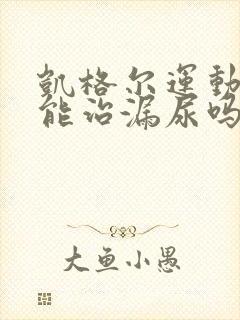 凱格尔運動
能治漏尿吗
大鱼小愚